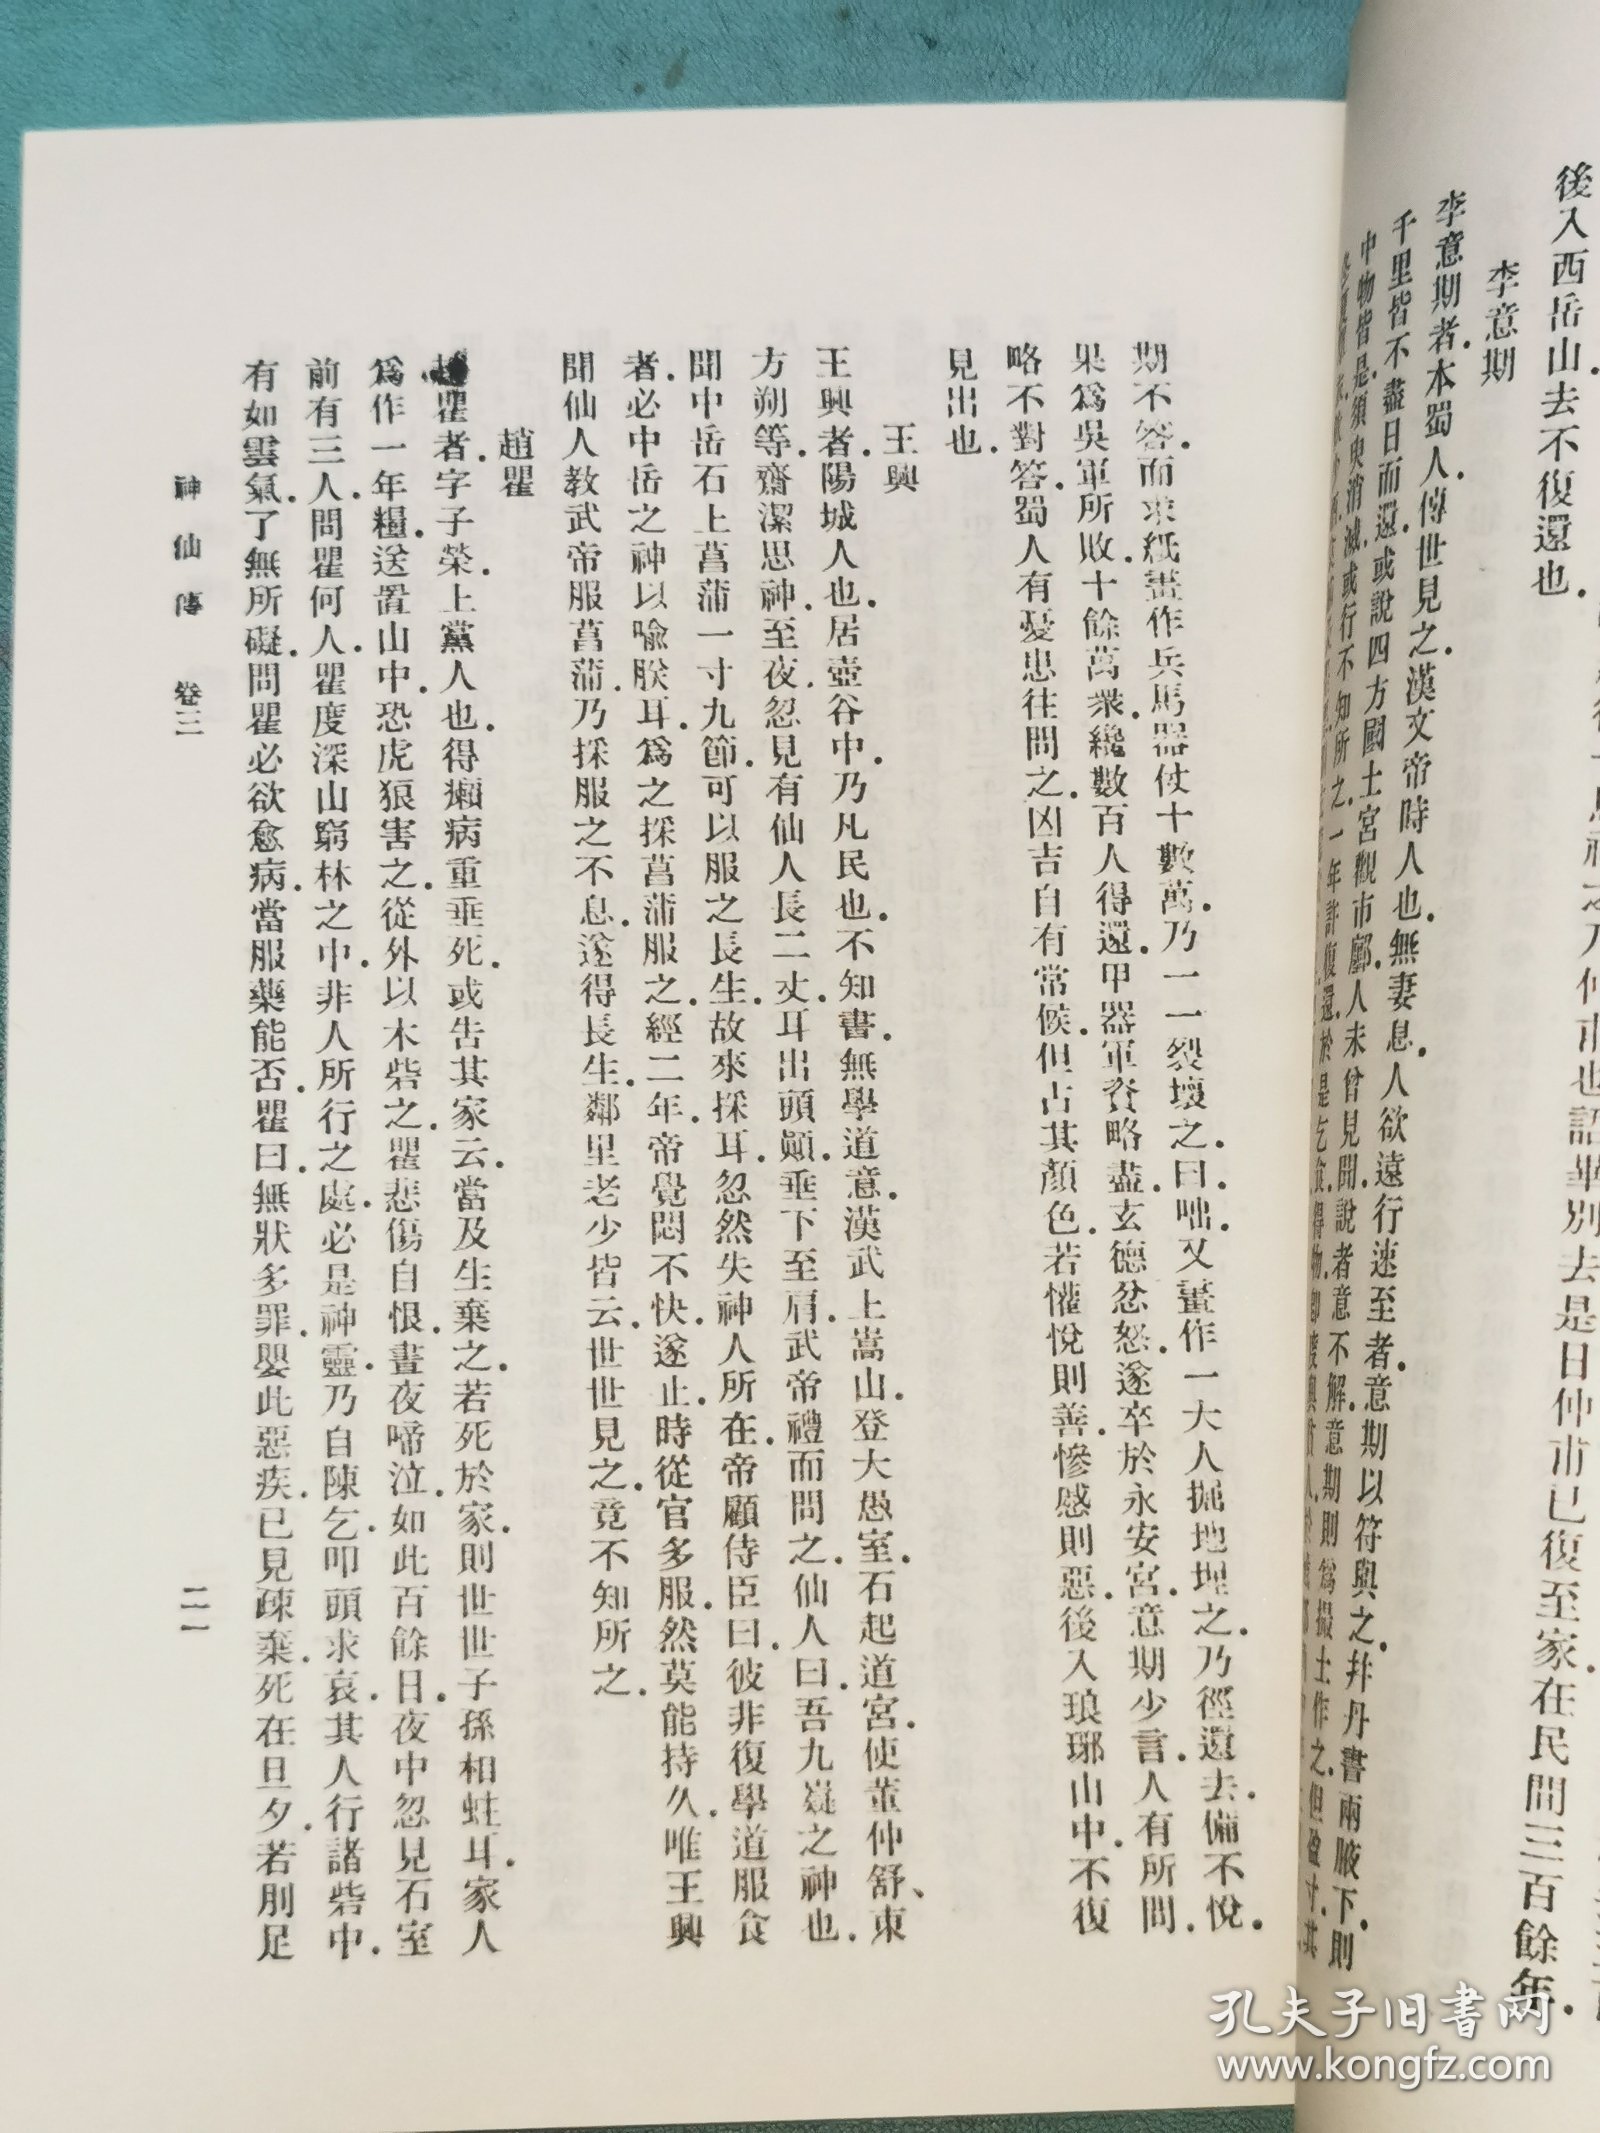 後入西岳山去不復還也.
李意期
李意期者.本蜀人.傳世見之.漢文帝時人也.無妻息.人欲遠行速至者.意期以符與之.并丹書兩腋下.則
千里皆不盡日而還.或說四方國土宮觀市鄽.人未曾見.聞說者.意不解.意期則爲撮土作之.但盈寸.其
中物皆是.須臾消滅.或行不知所之.一年許復還.於是乞食得物.
期不答.而求紙畫作兵馬器仗十數萬.乃一一裂壞之.曰.咄.又畫作一大人掘地埋之.乃徑還去.備不悅.
果爲吳軍所敗.十餘萬衆.纔數百人得還.甲器軍資略盡.玄德忿怒.遂卒於永安宮.意期少言.人有所問.
略不對答.蜀人有憂患往問之.凶吉自有常候.但占其顏色.若懽悅則善.慘慼則惡.後入琅琊山中.不復
見出也.
王興
王興者.陽城人也.居壺谷中.乃凡民也.不知書.無學道意.漢武上嵩山.登大愚室.石起道宮.使董仲舒、東
方朔等.齋潔思神.至夜.忽見有仙人長二丈.耳出頭顚.垂下至肩.武帝禮而問之.仙人曰.吾九嶷之神也.
聞中岳石上菖蒲一寸九節.可以服之長生.故來採耳.忽然失神人所在.帝顧侍臣曰.彼非復學道服食
者.必中岳之神以喻朕耳.爲之採菖蒲服之.經二年.帝覺悶不快.遂止.時從官多服.然莫能持久.唯王興
聞仙人教武帝服菖蒲.乃採服之不息.遂得長生.鄰里老少皆云.世世見之.竟不知所之.
趙瞿
瞿者.字子榮.上黨人也.得癩病重垂死.或告其家云.當及生棄之.若死於家.則世世子孫相蛀耳.家人
爲作一年糧.送置山中.恐虎狼害之.從外以木砦之.瞿悲傷自恨.晝夜啼泣.如此百餘日.夜中忽見石室
前有三人.問瞿何人.瞿度深山窮林之中.非人所行之處.必是神靈.乃自陳乞.叩頭求哀.其人行諸砦中.
有如雲氣.了無所礙.問瞿必欲愈病.當服藥能否.瞿曰.無狀多罪.嬰此惡疾.已見疎棄.死在旦夕.若刖足
神仙傳 卷三
二一
孔夫子旧书网
www.kongfz.com